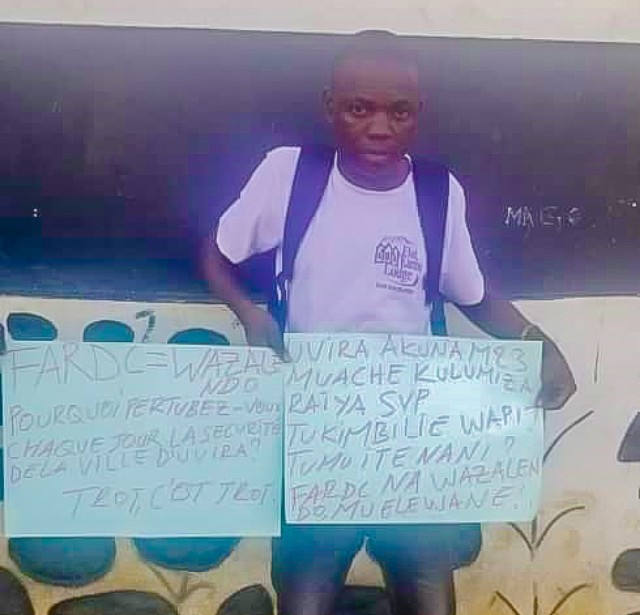 FARDC=WAZALE
NDO
POURQUOI PERTUBEZ-VOUS
CHAQUE JOUR LA SECURITE
DE LA VILLE D'UVIRA?
TROT, C'EST TROT.
UVIRA AKUNA M23
MUACHE KULUMIZA
RAIYA SVP
TUKIMBILIE WAPI?
TUMUITE NANI?
FARDC NA WAZALEN
DO, MUELEWANE!
Lodge